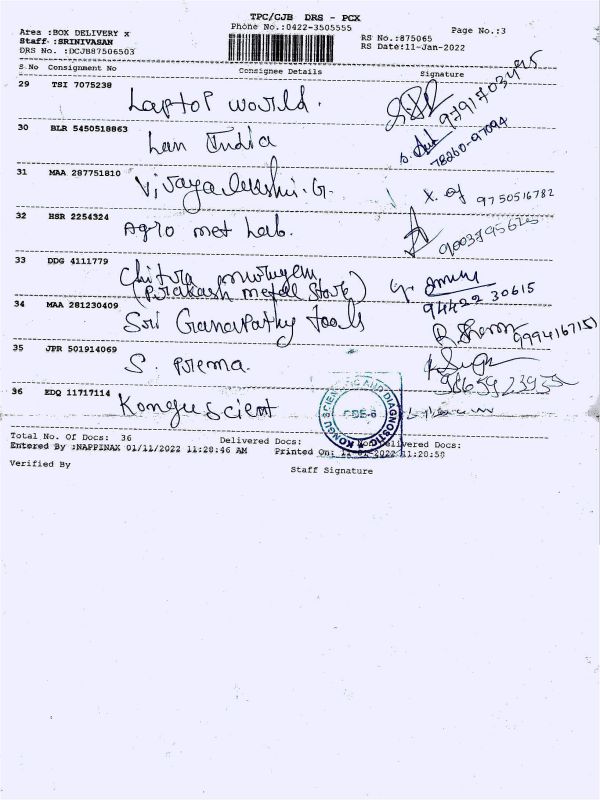 TPC/CJB DRS - PCX
Phone No.:0422-3505555
Page No.:3
Area :BOX DELIVERY x
Staff :SRINIVASAN
DRS No. :DCJB87506503
RS No.:875065
RS Date:11-Jan-2022
S No Consignment No Consignee Details Signature
29 TSI 7075238 Laptop world. 9791703495
30 BLR 5450518863 Lan India 78260-97094
31 MAA 287751810 Vijayalekshi.G. 9750516782
32 HSR 2254324 Agro met Lab. 9003795625
33 DDG 4111779 Chitra murugem
(Prakash metal Store) 94422 30615
34 MAA 281230409 Sri Ganapathy Tools
35 JPR 501914069 S. Prema.
36 EDQ 11717114 Kongu scient
KONGU SCIENTIFIC AND DIAGNOSTIC
CBE-6
Total No. Of Docs: 36 Delivered Docs: Non Delivered Docs:
Entered By :NAPPINAX 01/11/2022 11:28:46 AM Printed On: 11-01-2022 11:28:58
Verified By Staff Signature